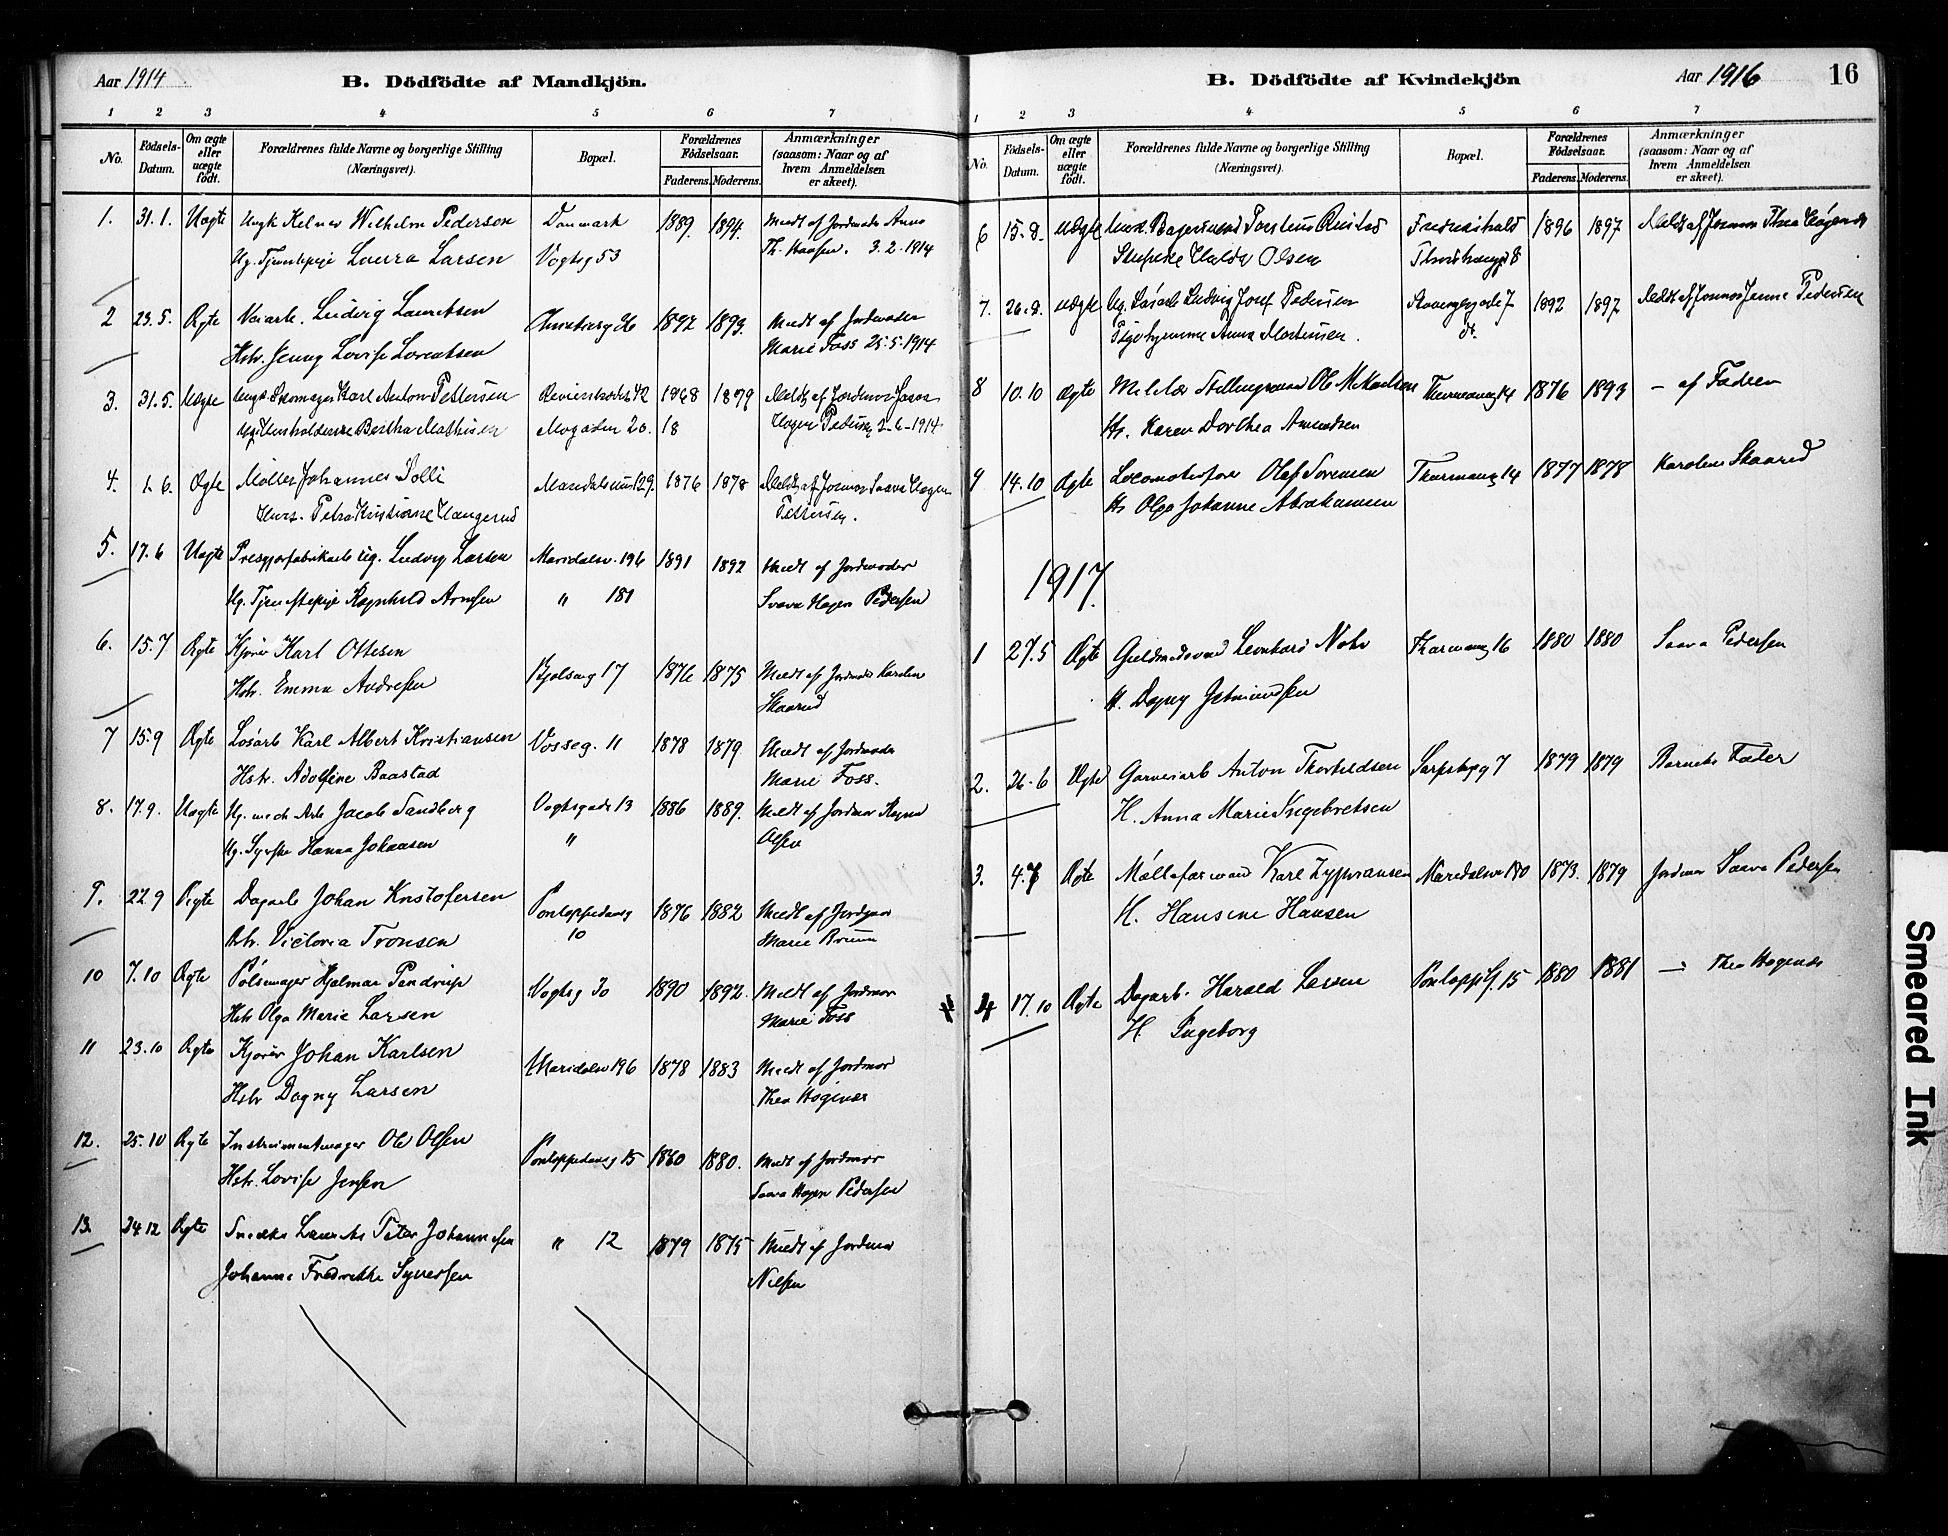 Aar 1914
B. Dödfödte af Mandkjön.
1 2 3 4 5 6 7
No. Födsels-Datum. Om ægte eller uægte födt. Forældrenes fulde Navne og borgerlige Stilling (Næringsvei). Bopæl. Forældrenes Födselsaar. Faderens. Moderens. Anmærkninger (saasom: Naar og af hvem Anmeldelsen er skeet).
1. 31.1. Uægte Ungk. Kelner Wilhelm Pedersen Danmark 1889 1894 Meldt af Jordmoder Anna
Ug. Tjenestepige Laura Larsen Vogtsg 53 3.2.1914
2 23.5. Ægte Ludvig Lauritsen 26 1892 1893 Meldt af Jordmoder
Hstr. Jenny Lovise Lorentsen Marie Foss 25.5.1914
3. 31.5. Uægte Ungk. Skomager Karl Anton Pettersen 42 1868 1879 Meldt af Jordmor
Husholderske Bertha Mathisen 20. Hagen Pedersen 2-6-1914
4. 1.6. Ægte Møller Johannes Solli 129 1876 1878 Meldt af Jormor Saava Hagen
Petra Kristiane Haugerud Pettersen.
5. 17.6 Uægte Ludvig Larsen Maridalsv. 196 1891 1892 Meldt af Jordmoder
Ug. Tjenestepige Ragnhild Arnesen " 181 Saava Hagen Pedersen
6. 15.7 Ægte Kjører Karl Ottesen Bjølseng 17 1876 1875 Meldt af Jordmoder Karoline
Hstr. Emma Andresen Skaarud
7 15.9 Ægte Løsarb Karl Albert Kristiansen Vosseg. 11 1878 1879 Meldt af Jordmoder
Hstr. Adolfine Baastad Marie Foss.
8. 17.9. Uægte Ug. mek Arb Jacob Sandberg Vogtsgade 13 1886 1889. Meldt af Jordmor Ragna
Ug. Syerske Hanna Johansen " Olsen
9. 22.9 Ægte Dagarb Johan Kristofersen Pontoppedansg 10 1876 1882 Meldt af Jordmor
Hstr. Victoria Tronsen Marie Bruun
10 7.10 Ægte Pølsemager Hjalmar Vogtsg 30 1890 1892. Meldt af Jordmor
Hstr Olga Marie Larsen Marie Foss
11 23.10 Ægte Kjører Johan Karlsen Maridalsv 196 1878 1883 Meldt af Jordmor
Hstr Dagny Larsen Thea Høgenæs
12. 25.10 Ægte Instrumentmager Ole Olsen Pontoppedansg 15 1860 1880. Meldt af Jordmor
Hstr. Lovise Jensen Saava Hagen Pedersen
13. 24 12 Ægte Peter Johannesen " 12 1879 1875 Meldt af Jordmor
Johanne Fredrikke Syversen Nilsen
B. Dödfödte af Kvindekjön
Aar 1916
16
1 2 3 4 5 6 7
No. Födsels-Datum. Om ægte eller uægte födt. Forældrenes fulde Navne og borgerlige Stilling (Næringsvei). Bopæl. Forældrenes Födselsaar. Faderens. Moderens. Anmærkninger (saasom: Naar og af hvem Anmeldelsen er skeet).
6 15.8. uægte Bagersvend Torsteus Fredrikshald 1896 1897 Meldt af Jormor Thea Høgenæs
Hulda Olsen 8
7. 26.8. uægte Ug. Løsarb Ludvig Josef Pedersen 7 1892 1897 Meldt af Jormor Jenne Pedersen
Anna Mortensen.
8 10.10 Ægte Ole Mikaelsen Thurmannsg 14 1876 1893 — af Faderen
H. Karen Dorthea Amundsen
9 14.10 Ægte Locomotivfører Olaf Sørensen Thurmannsg 14 1877 1878 Karoline Skaarud
H. Olga Johanne Abrahamsen
1917.
1 27.5 Ægte Guldsmedsvend Leonhard Nohr Thurmannsg 16 1880 1880 Saava Pedersen
H. Dagny
2. 26.6 Ægte Garveriarb Anton Thorkildsen Sarpsbgg 7 1879 1879 Barnets Fader
H. Anna Marie Ingebretsen
3. 4.7 Ægte Møllaformand Karl Zypriansen Maridalsv 180 1873. 1879 Jordmor Saava Pedersen
H. Hansine Hansen
4 17.10 Ægte Dagarb. Harald Larsen Pontoppg. 15 1880 1881 — Thea Høgenæs
H Ingeborg
Smeared Ink